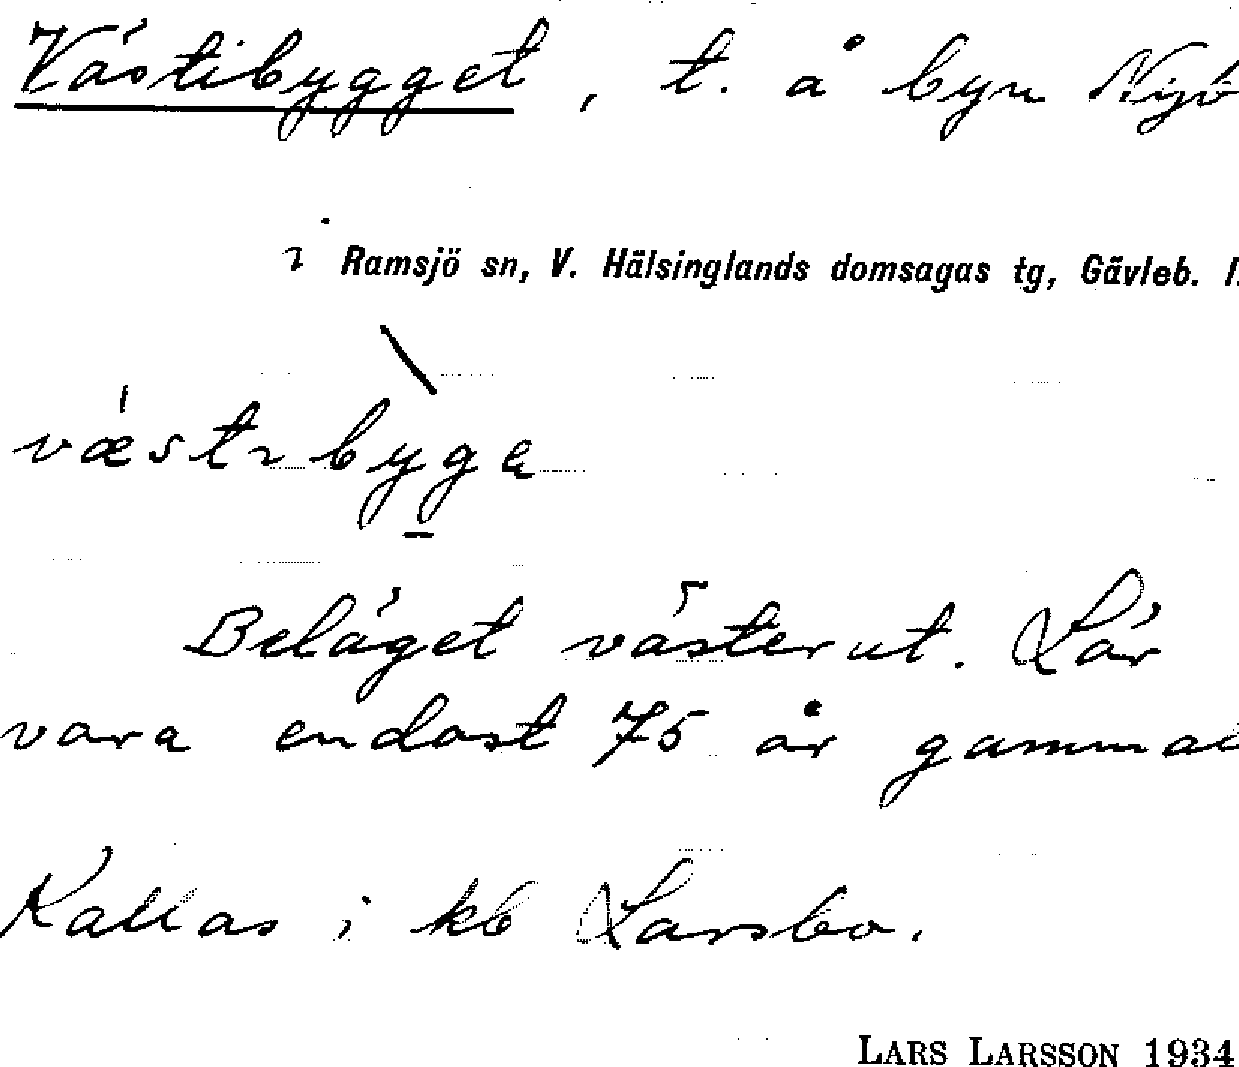 Västibygget, t. å byn Nyb
i Ramsjö sn, V. Hälsinglands domsagas tg, Gävleb. l.
Beläget västerut. Lär
vara endast 75 år gammal
Kallas i kb Larsbo.
LARS LARSSON 1934